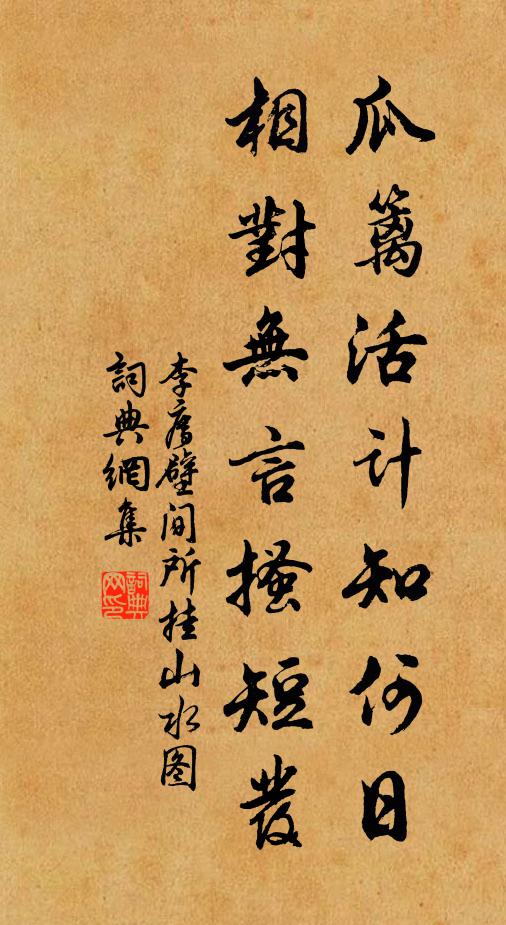 瓜籬活計知何日
相對無言搔短發
李膺壁间所挂山水图
詞典網集
詞典网印